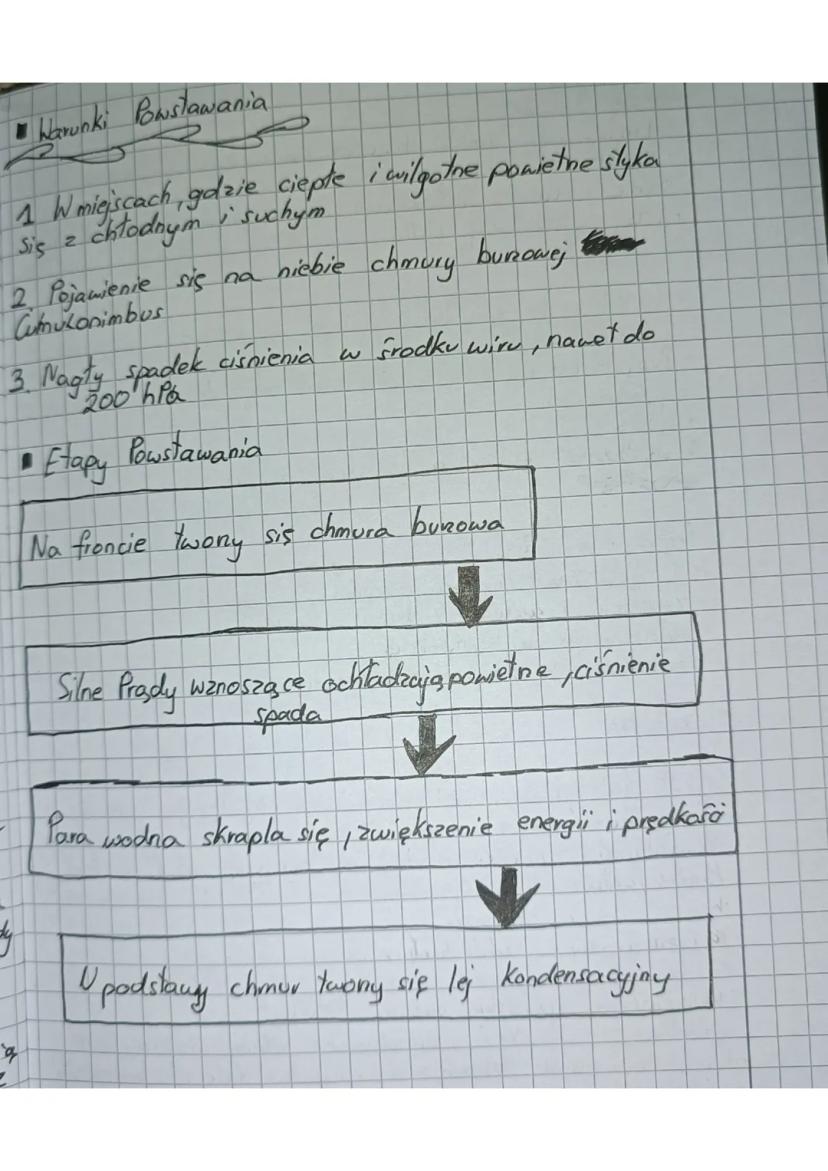 ▪ Warunki Powstawania
1 W miejscach, gdzie ciepłe i wilgotne powietrze styka
się z chłodnym i suchym
2. Pojawienie się na niebie chmury burzowej
Cumulonimbus
3. Nagły spadek ciśnienia w środku wiru, nawet do
200 hPa
▪ Etapy Powstawania
Na froncie tworzy się chmura burzowa
Silne Prądy wznoszące ochładzają powietrze, ciśnienie
spada
Para wodna skrapla się, zwiększenie energii i prędkość
U podstawy chmur tworzy się lej kondensacyjny